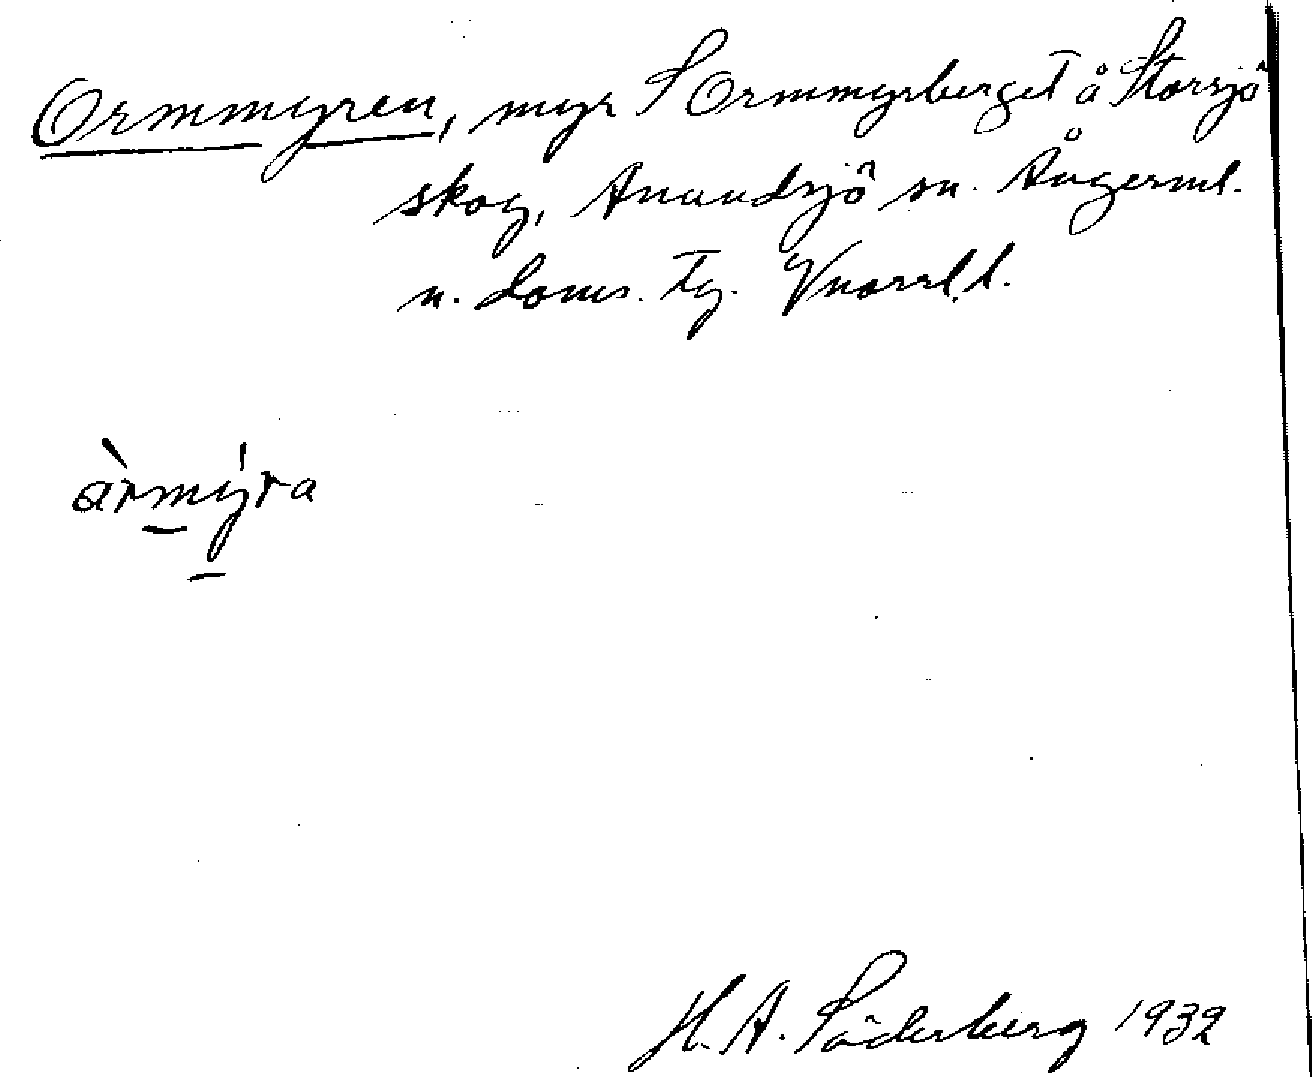 Ormmyren, myr S Ormmyrberget å Storsjö
skog, Anundsjö sn. Ångerml.
n. doms. Tg. Vnorrl. l.
àrmýra
H. A. Söderberg 1932